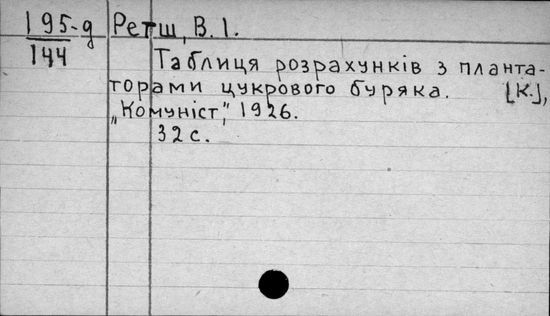 195-д
144
Ретш, В. І.
Таблиця розрахунків з планта-
торами цукрового буряка. [К.],
„Комуніст", 1926.
32 с.